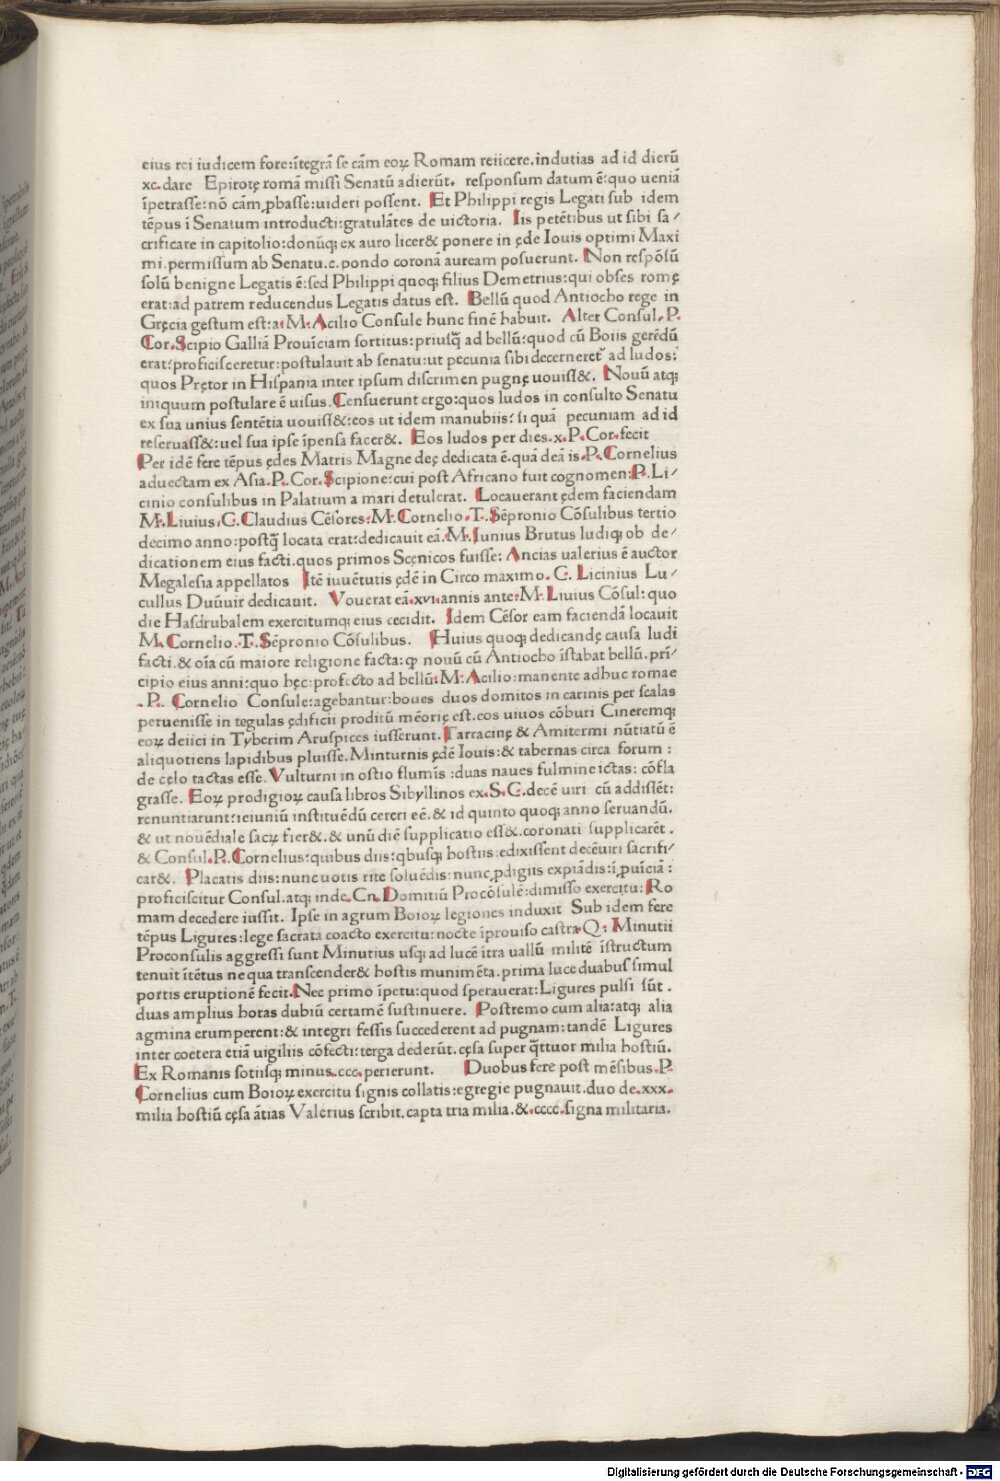 eius rei iudicem fore:ītegrā se cām eoꝝ Romam reiicere.indutias ad id dierū
xc.dare Epirotę romā missi Senatū adierūt. responsum datum ē:quo ueniā
īpetrasse:nō cām ꝓbasse:uideri possent. Et Philippi regis Legati sub idem
tēpus ī Senatum introducti:gratulātes de uictoria. Iis petētibus ut sibi sa/
crificare in capitolio:donūqꝫ ex auro licer& ponere in ęde Iouis optimi Maxi
mi.permissum ab Senatu.c.pondo coronā auream posuerunt. Non respōsū
solū benigne Legatis ē:sed Philippi quoqꝫ filius Demetrius:qui obses romę
erat:ad patrem reducendus Legatis datus est. Bellū quod Antiocho rege in
Gręcia gestum est:a:M.Acilio Consule hunc finē habuit. Alter Consul.P.
Cor.Scipio Galliā Prouīciam sortitus:priusq̄ ad bellū:quod cū Boiis gerēdū
erat:proficisceretur:postulauit ab senatu:ut pecunia sibi decerneret ad ludos:
quos Prętor in Hispania inter ipsum discrimen pugnę uouiss&. Nouū atqꝫ
iniquum postulare ē uisus.Censuerunt ergo:quos ludos in consulto Senatu
ex sua unius sentētia uouiss&:eos ut idem manubiis:si quā pecuniam ad id
reseruass&:uel sua ipse īpensa facer&. Eos ludos per dies.x.P.Cor.fecit
Per idē fere tēpus ędes Matris Magne deę dedicata ē.quā deā is.P.Cornelius
aduectam ex Asia.P.Cor.Scipione:cui post Africano fuit cognomen:P.Li/
cinio consulibus in Palatium a mari detulerat. Locauerant ędem faciendam
M.Liuius.C.Claudius Cēsores:M.Cornelio.T.Sēpronio Cōsulibus tertio
decimo anno:postq̄ locata erat:dedicauit eā.M.Iunius Brutus ludiqꝫ ob de/
dicationem eius facti.quos primos Scęnicos fuisse: Ancias ualerius ē auctor
Megalesia appellatos Itē iuuētutis ędē in Circo maximo.C. Licinius Lu/
cullus Duūuir dedicauit. Vouerat eā.xvi.annis ante:M.Liuius Cōsul:quo
die Hasdrubalem exercitumqꝫ eius cecidit. Idem Cēsor eam faciendā locauit
M.Cornelio.T.Sēpronio Cōsulibus. Huius quoqꝫ dedicandę causa ludi
facti.& oīa cū maiore religione facta:ꝙ nouū cū Antiocho īstabat bellū.prī/
cipio eius anni:quo hęc:profecto ad bellū:M.Acilio:manente adhuc romae
.P. Cornelio Consule:agebantur:boues duos domitos in carinis per scalas
peruenisse in tegulas ędificii proditū mēorię est.eos uiuos cōburi Cineremqꝫ
eoꝝ deiici in Tyberim Aruspices iusserunt.Tarracinę & Amitermi nūtiatū ē
aliquotiens lapidibus pluisse.Minturnis ędē Iouis:& tabernas circa forum :
de cęlo tactas esse.Vulturni in ostio flumīs :duas naues fulmine ictas: cōfla
grasse. Eoꝝ prodigioꝝ causa libros Sibyllinos ex.S.C.decē uiri cū addissēt:
renuntiarunt:ieiuniū instituēdū cereri eē.& id quinto quoqꝫ anno seruandū.
& ut nouēdiale sacꝝ fier&.& unū diē supplicatio ess&.coronati supplicarēt.
& Consul.P.Cornelius:quibus diis:qbusqꝫ hostiis:edixissent decēuiri sacrifi/
car&. Placatis diis:nunc uotis rite soluēdis:nunc ꝓdigiis expiādis:ī ꝓuīciā:
proficiscitur Consul.atqꝫ inde.Cn.Domitiū Procōsulē:dimisso exercitu:Ro
mam decedere iussit. Ipse in agrum Boioꝝ legiones induxit Sub idem fere
tēpus Ligures:lege sacrata coacto exercitu:nocte īprouiso castra.Q: Minutii
Proconsulis aggressi sunt Minutius usqꝫ ad lucē ītra uallū militē īstructum
tenuit ītētus ne qua transcender& hostis munimēta.prima luce duabus simul
portis eruptionē fecit.Nec primo īpetu:quod sperauerat:Ligures pulsi sūt .
duas amplius horas dubiū certamē sustinuere. Postremo cum alia:atqꝫ alia
agmina erumperent:& integri fessis succederent ad pugnam:tandē Ligures
inter coetera etiā uigiliis cōfecti:terga dederūt.cęsa super q̄ttuor milia hostiū.
Ex Romanis sotiisqꝫ minus.ccc.perierunt. Duobus fere post mēsibus.P.
Cornelius cum Boioꝝ exercitu signis collatis:egregie pugnauit.duo de.xxx.
milia hostiū cęsa ātias Valerius scribit.capta tria milia.&.cccc.signa militaria.
Digitalisierung gefördert durch die Deutsche Forschungsgemeinschaft - DFG